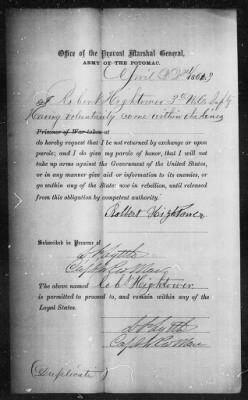 Office of the Provost Marshal General,
ARMY OF THE POTOMAC.
April 186
I Robert Hightower 3d
Having voluntarily come within the lines
Prisoner of War taken at
do hereby request that I be not returned by exchange or upon
parole; and I do give my parole of honor, that I will not
take up arms against the Government of the United States,
or in any manner give aid or information to its enemies, or
go within any of the States now in rebellion, until released
from this obligation by competent authority.
Robert Hightower
Subscribed in Presence of
Capt & Pro Mar
The above named Robt Hightower
is permitted to proceed to, and remain within any of the
Loyal States.
Capt & Pro Mar
(Duplicate)